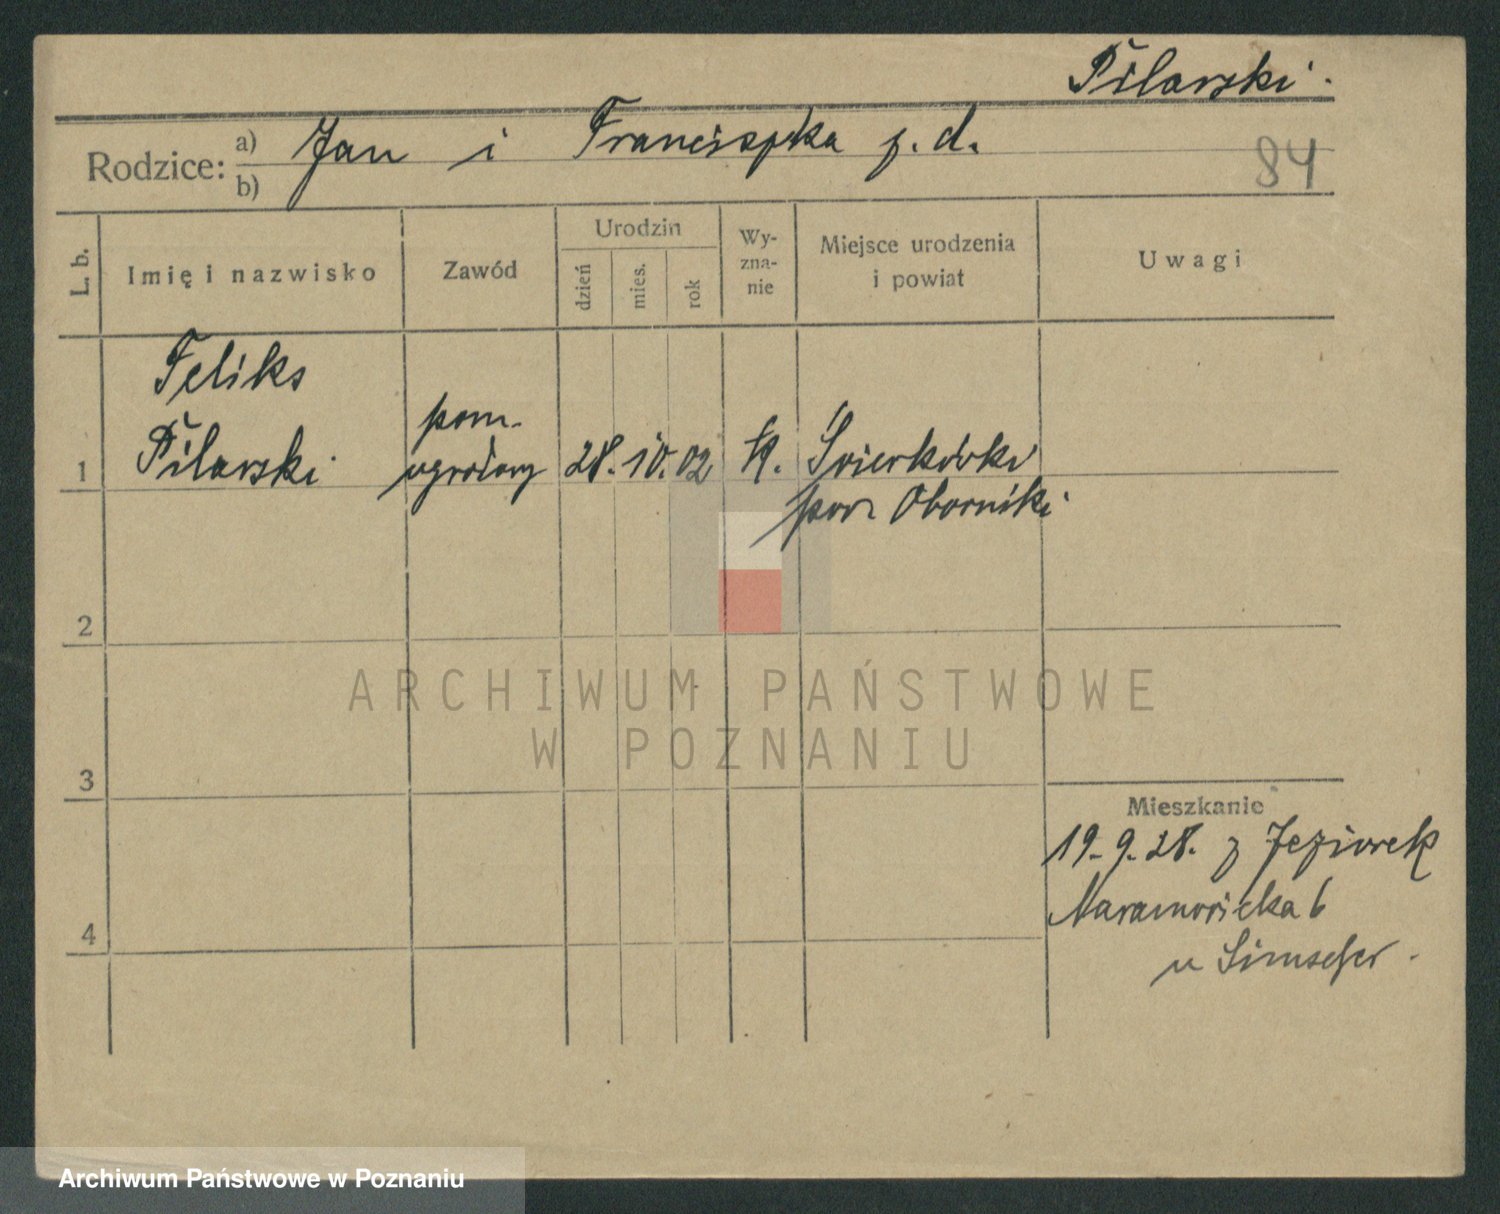 Pilarski.
Rodzice: a) Jan i Franciszka z. d.
b)
84
L. b.
Imię i nazwisko
Zawód
Urodzin
dzień
mies.
rok
Wy-
zna-
nie
Miejsce urodzenia
i powiat
Uwagi
Feliks
pom.
1 Pilarski ogrodowy 28. 10. 02 Świerkówki
pow. Oborniki
2
ARCHIWUM PAŃSTWOWE
W POZNANIU
3
Mieszkanie
19. 9. 28. z Jeziorek
4 6
u
Archiwum Państwowe w Poznaniu